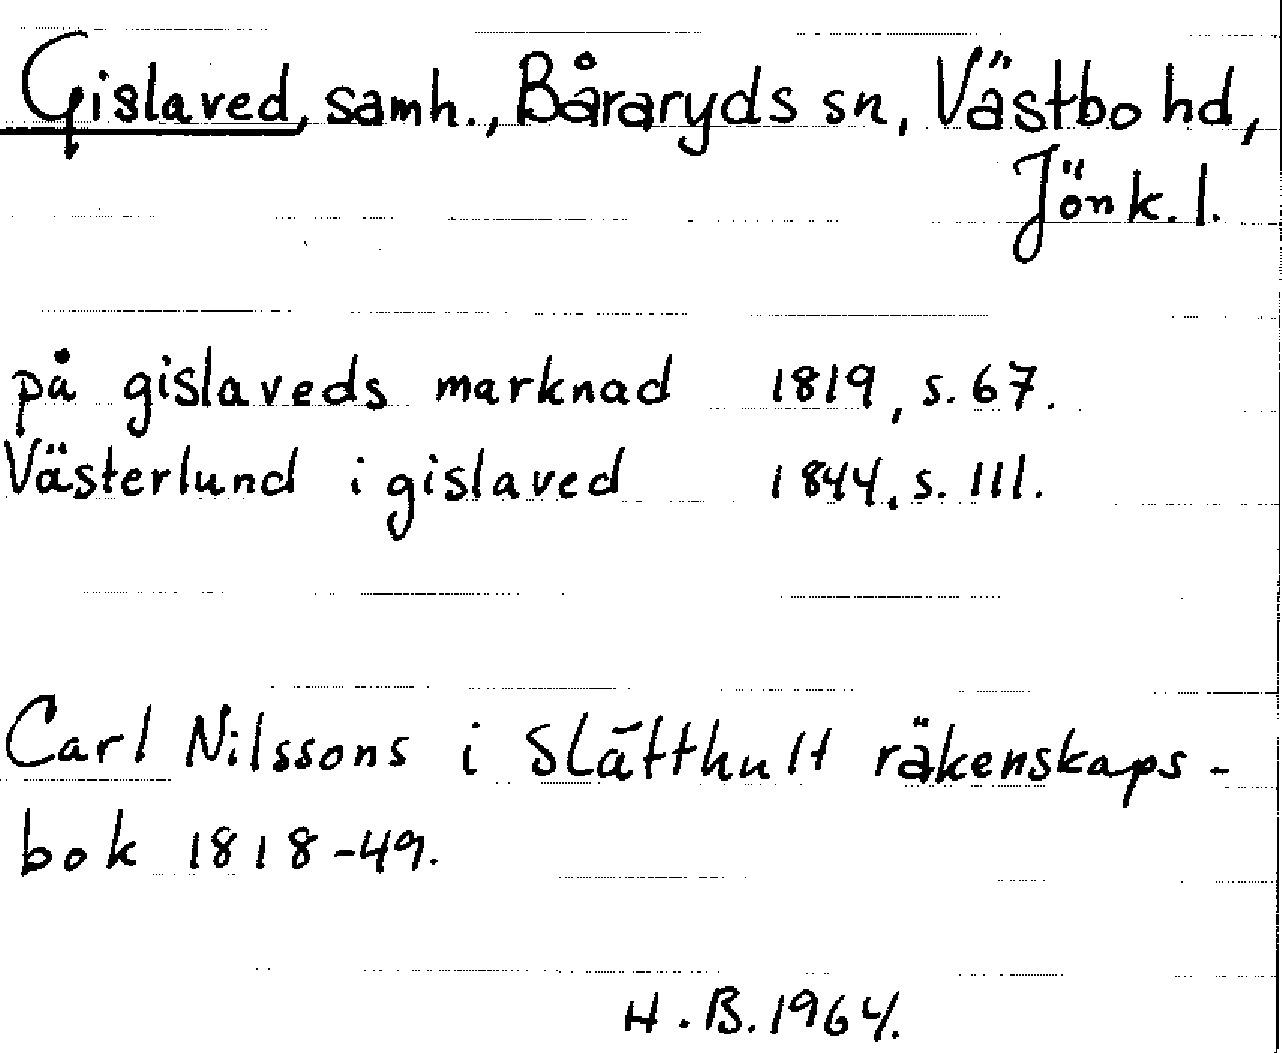 Gislaved, samh., Båraryds sn, Västbo hd,
Jönk. l.
på gislaveds marknad 1819, s. 67.
Västerlund i gislaved 1844, s. 111.
Carl Nilssons i Slätthult räkenskaps-
bok 1818-49.
H.B. 1964.